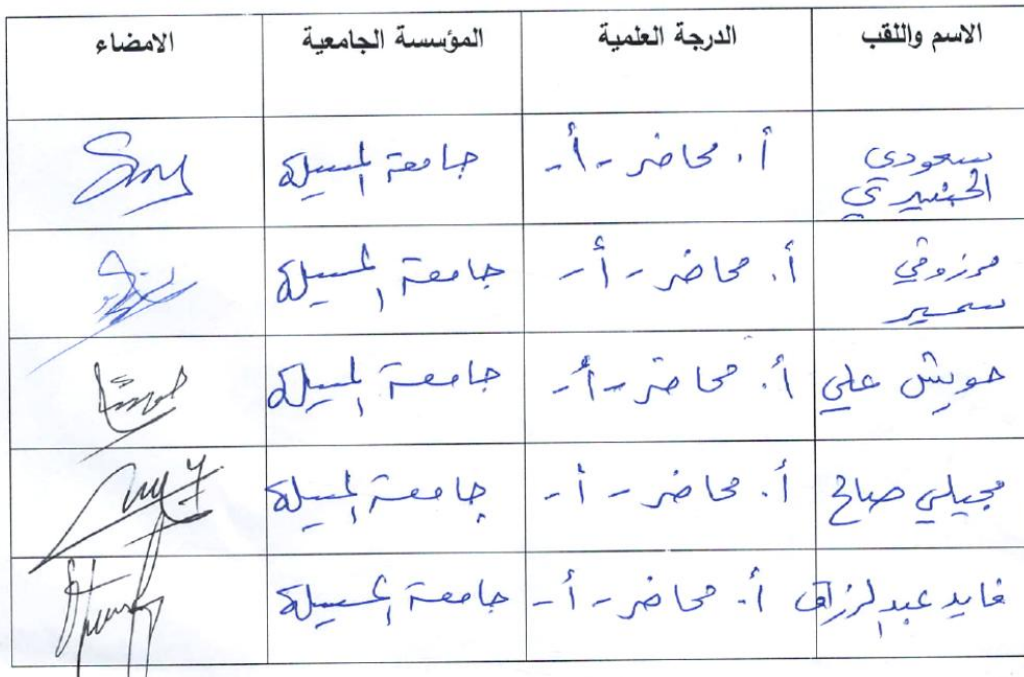 الاسم واللقب الدرجة العلمية المؤسسة الجامعية الامضاء
سعودي أ. محاضر - أ - جامعة المسيلة
مرزوقي أ. محاضر - أ - جامعة المسيلة
سمير
حويش علي أ. محاضر - أ - جامعة المسيلة
مجيلي صالح أ. محاضر - أ - جامعة المسيلة
فايد عبد الرزاق أ. محاضر - أ - جامعة المسيلة